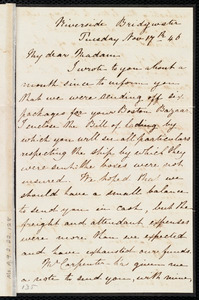 Riverside Bridgwater
Tuesday Nov 17th 46
My dear Madam
I wrote to you about a
month since to inform you
that we were sending off six
packages for your Boston Bazaar
I enclose the Bill of lading by
which you will see all particulars
respecting the ship by which they
were sent. the boxes were not
insured. We hoped that we
should have a small balance
to send you in cash, but the
freight and attendant expenses
were more than we expected
and have exhausted our funds.
Mr Carpenter has given me
a note to send you, with mine,
135